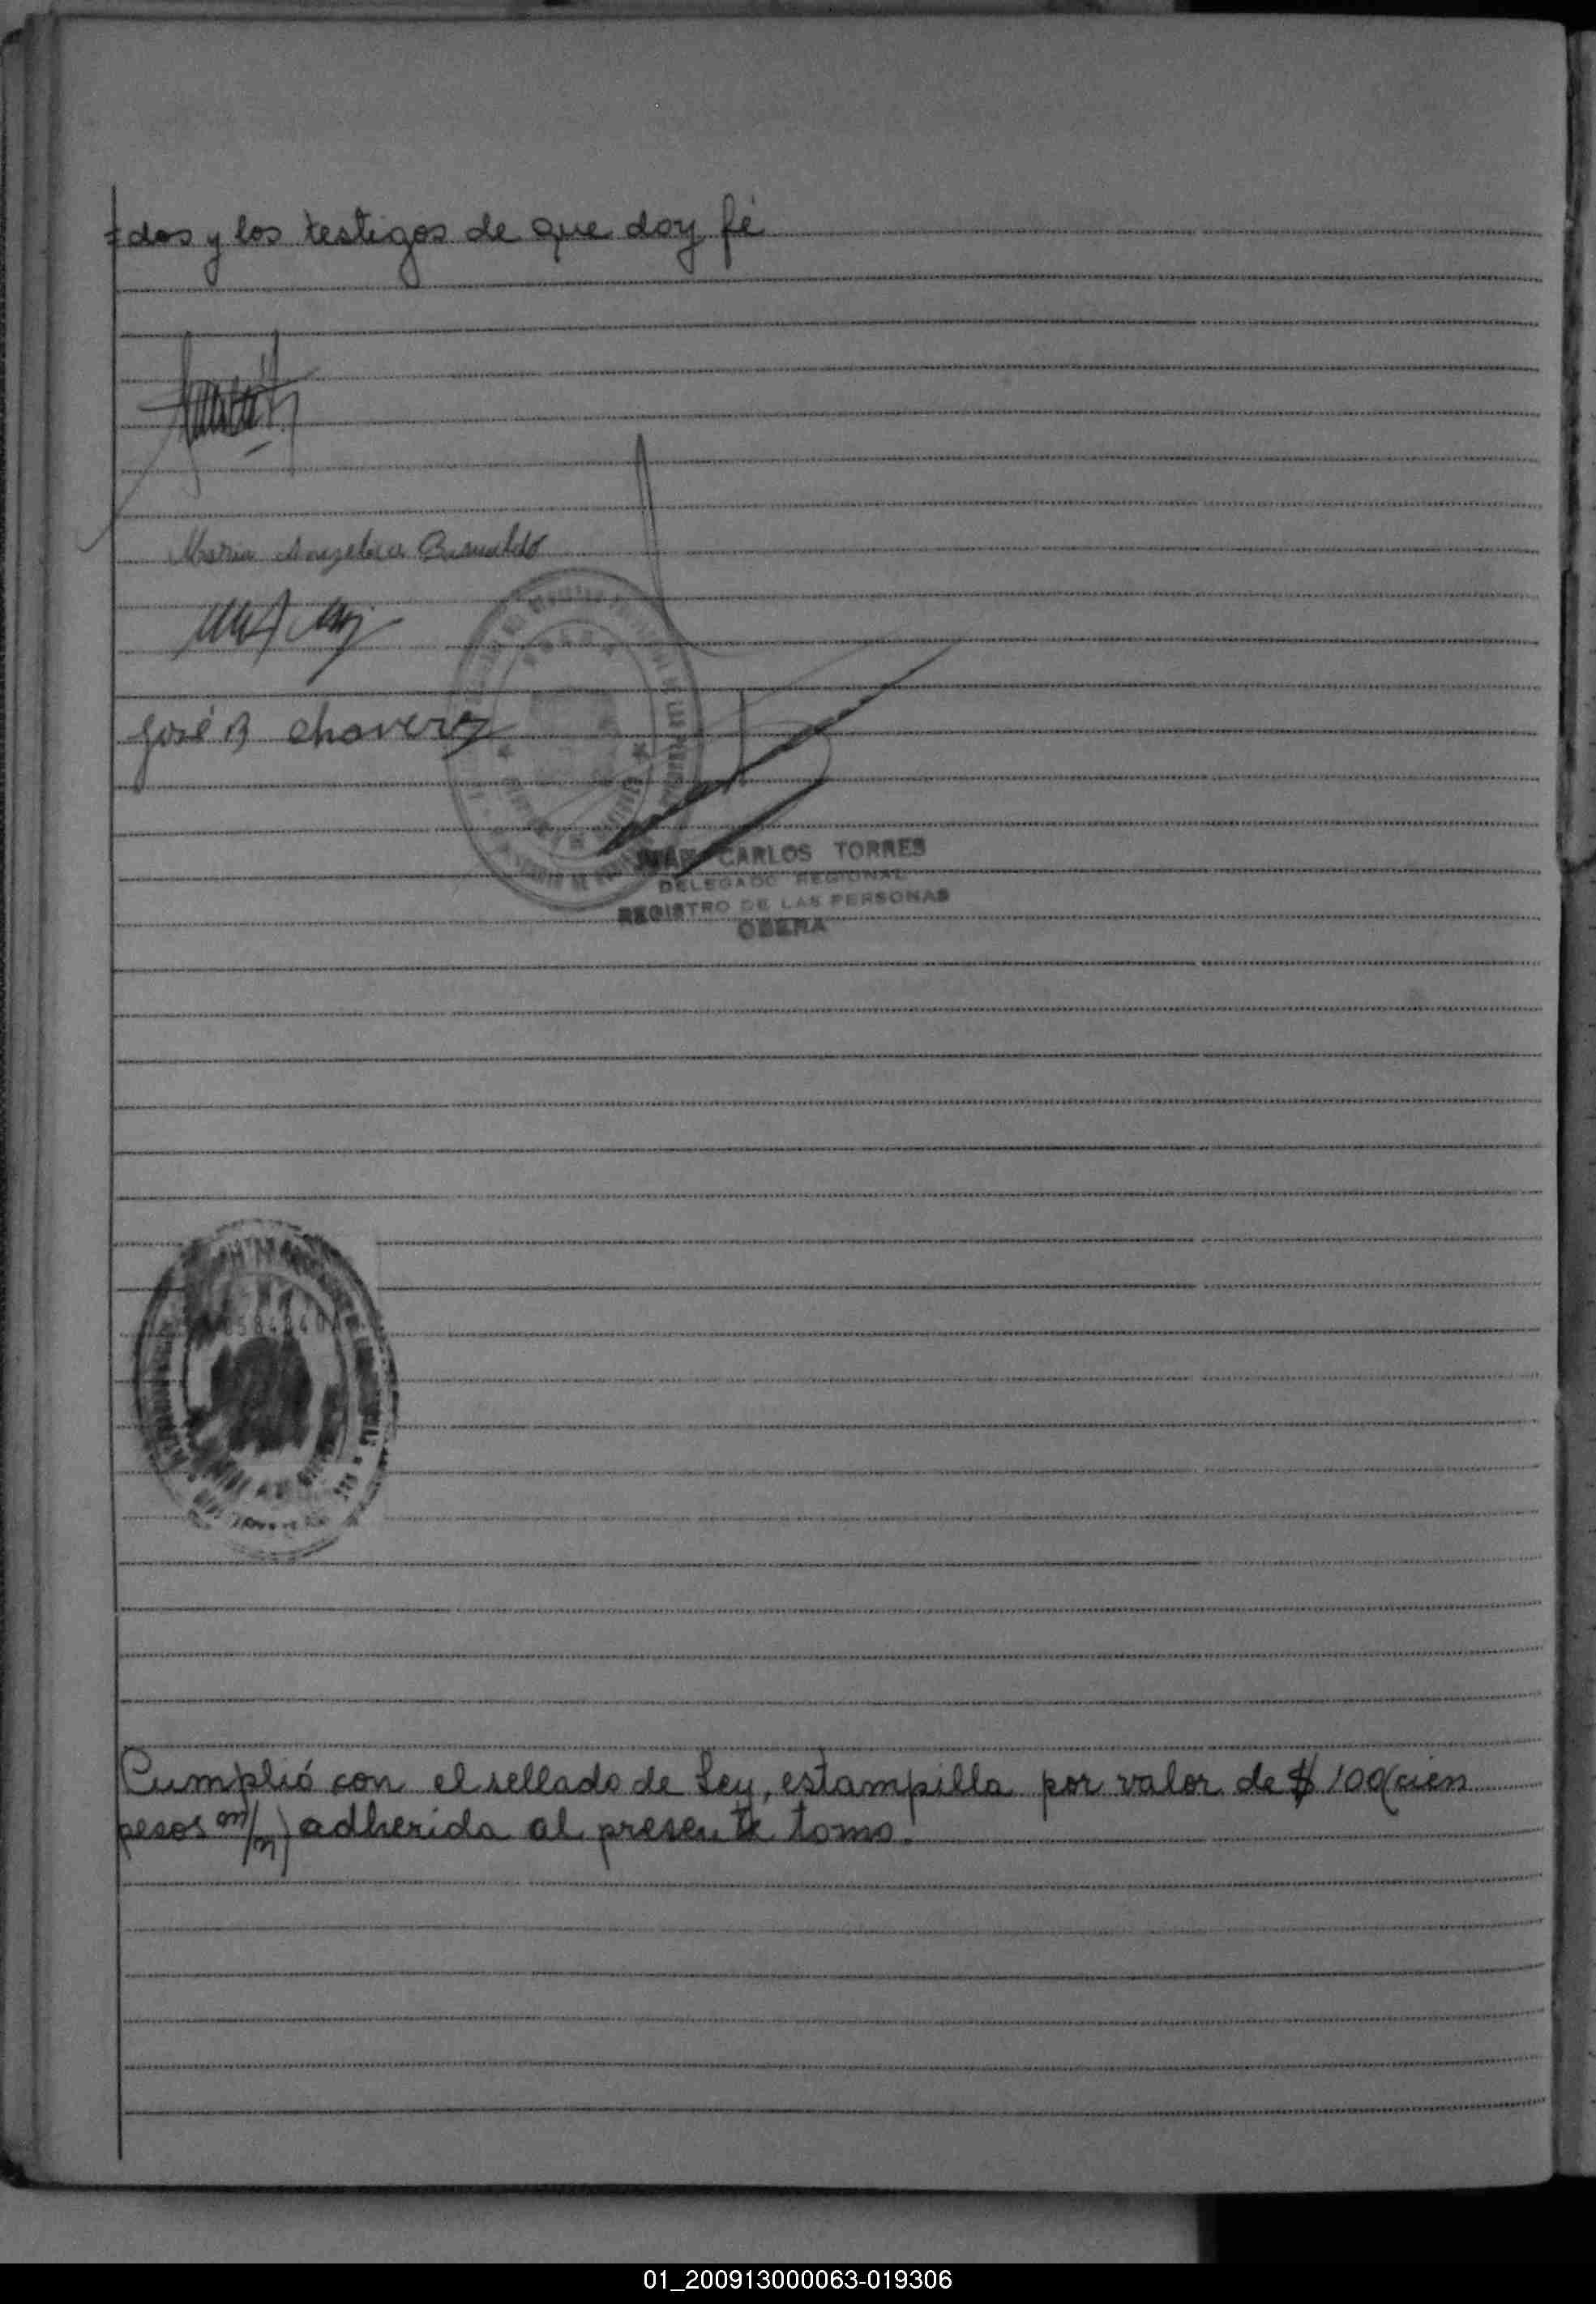 =dos y los testigos de que doy fé
Maria Angelica Basualdo
José B chaverz
JUAN CARLOS TORRES
DELEGADO REGIONAL
REGISTRO DE LAS PERSONAS
OBERA
Cumplió con el sellado de Ley, estampilla por valor de $ 100(cien
pesos m/n) adherida al presente tomo.
01_200913000063-019306